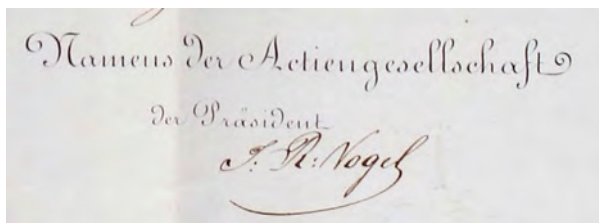 Namens der Actiengesellschaft
der Präsident
J. R: Vogel